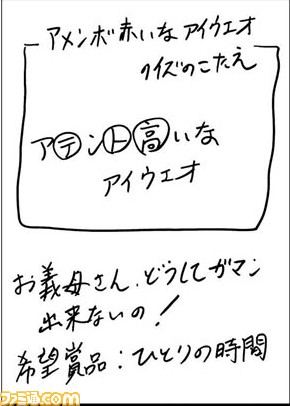 アメンボ赤いなアイウエオ
クイズのこたえ
アテント高いな
アイウエオ
お義母さん、どうしてガマン
出来ないの!
希望賞品:ひとりの時間
ファミ通.com